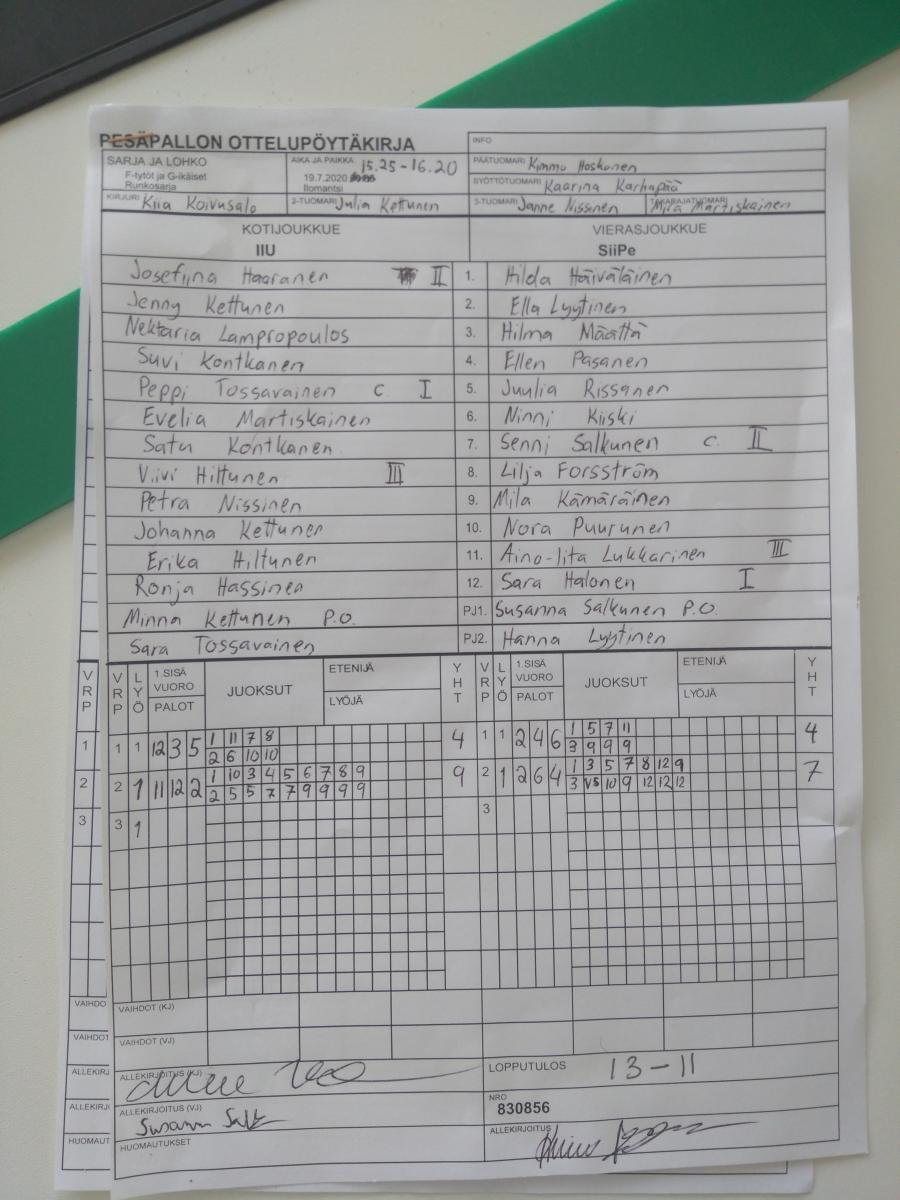 PESÄPALLON OTTELUPÖYTÄKIRJA
INFO
SARJA JA LOHKO
F-tytöt ja G-ikäiset
Runkosarja
AIKA JA PAIKKA 15.25-16.20
19.7.2020
Ilomantsi
PÄÄTUOMARI Kimmo Hoskonen
SYÖTTÖTUOMARI Kaarina Karhapää
KIRJURI Kiia Koivusalo
2-TUOMARI Julia Kettunen
3-TUOMARI Janne Nissinen
TAKARAJATUOMARI Mira Martiskainen
KOTIJOUKKUE
IIU
VIERASJOUKKUE
SiiPe
Josefiina Haaranen II 1. Hilda Häiväläinen
Jenny Kettunen 2. Ella Lyytinen
Nektaria Lampropoulos 3. Hilma Määttä
Suvi Kontkanen 4. Ellen Pasanen
Peppi Tossavainen c. I 5. Juulia Rissanen
Evelia Martiskainen 6. Ninni Kiiski
Satu Kontkanen 7. Senni Salkunen c. II
Viivi Hiltunen III 8. Lilja Forsström
Petra Nissinen 9. Mila Kämäräinen
Johanna Kettunen 10. Nora Puurunen
Erika Hiltunen 11. Aino-Iita Lukkarinen III
Ronja Hassinen 12. Sara Halonen I
Minna Kettunen P.O. PJ1. Susanna Salkunen P.O.
Sara Tossavainen PJ2. Hanna Lyytinen
VRP VRP LYÖ 1.SISÄ VUORO PALOT JUOKSUT ETENIJÄ LYÖJÄ YHT VRP LYÖ 1.SISÄ VUORO PALOT JUOKSUT ETENIJÄ LYÖJÄ YHT
1 1 1 12 3 5 1 11 7 8 4 1 1 2 4 6 1 5 7 11 4
2 6 10 10 3 9 9 9
2 2 1 11 12 2 1 10 3 4 5 6 7 8 9 9 2 1 2 6 4 1 3 5 7 8 12 9 7
2 5 5 7 7 9 9 9 9 3 VS 10 9 12 12 12
3 3 1 3
VAIHDOT (KJ)
VAIHDOT (VJ)
ALLEKIRJOITUS (KJ)
LOPPUTULOS 13-11
ALLEKIRJOITUS (VJ) Susanna
NRO
830856
HUOMAUTUKSET
ALLEKIRJOITUS
VAIHDO
VAIHDOT
ALLEKIRJ
ALLEKIRJ
HUOMAUT